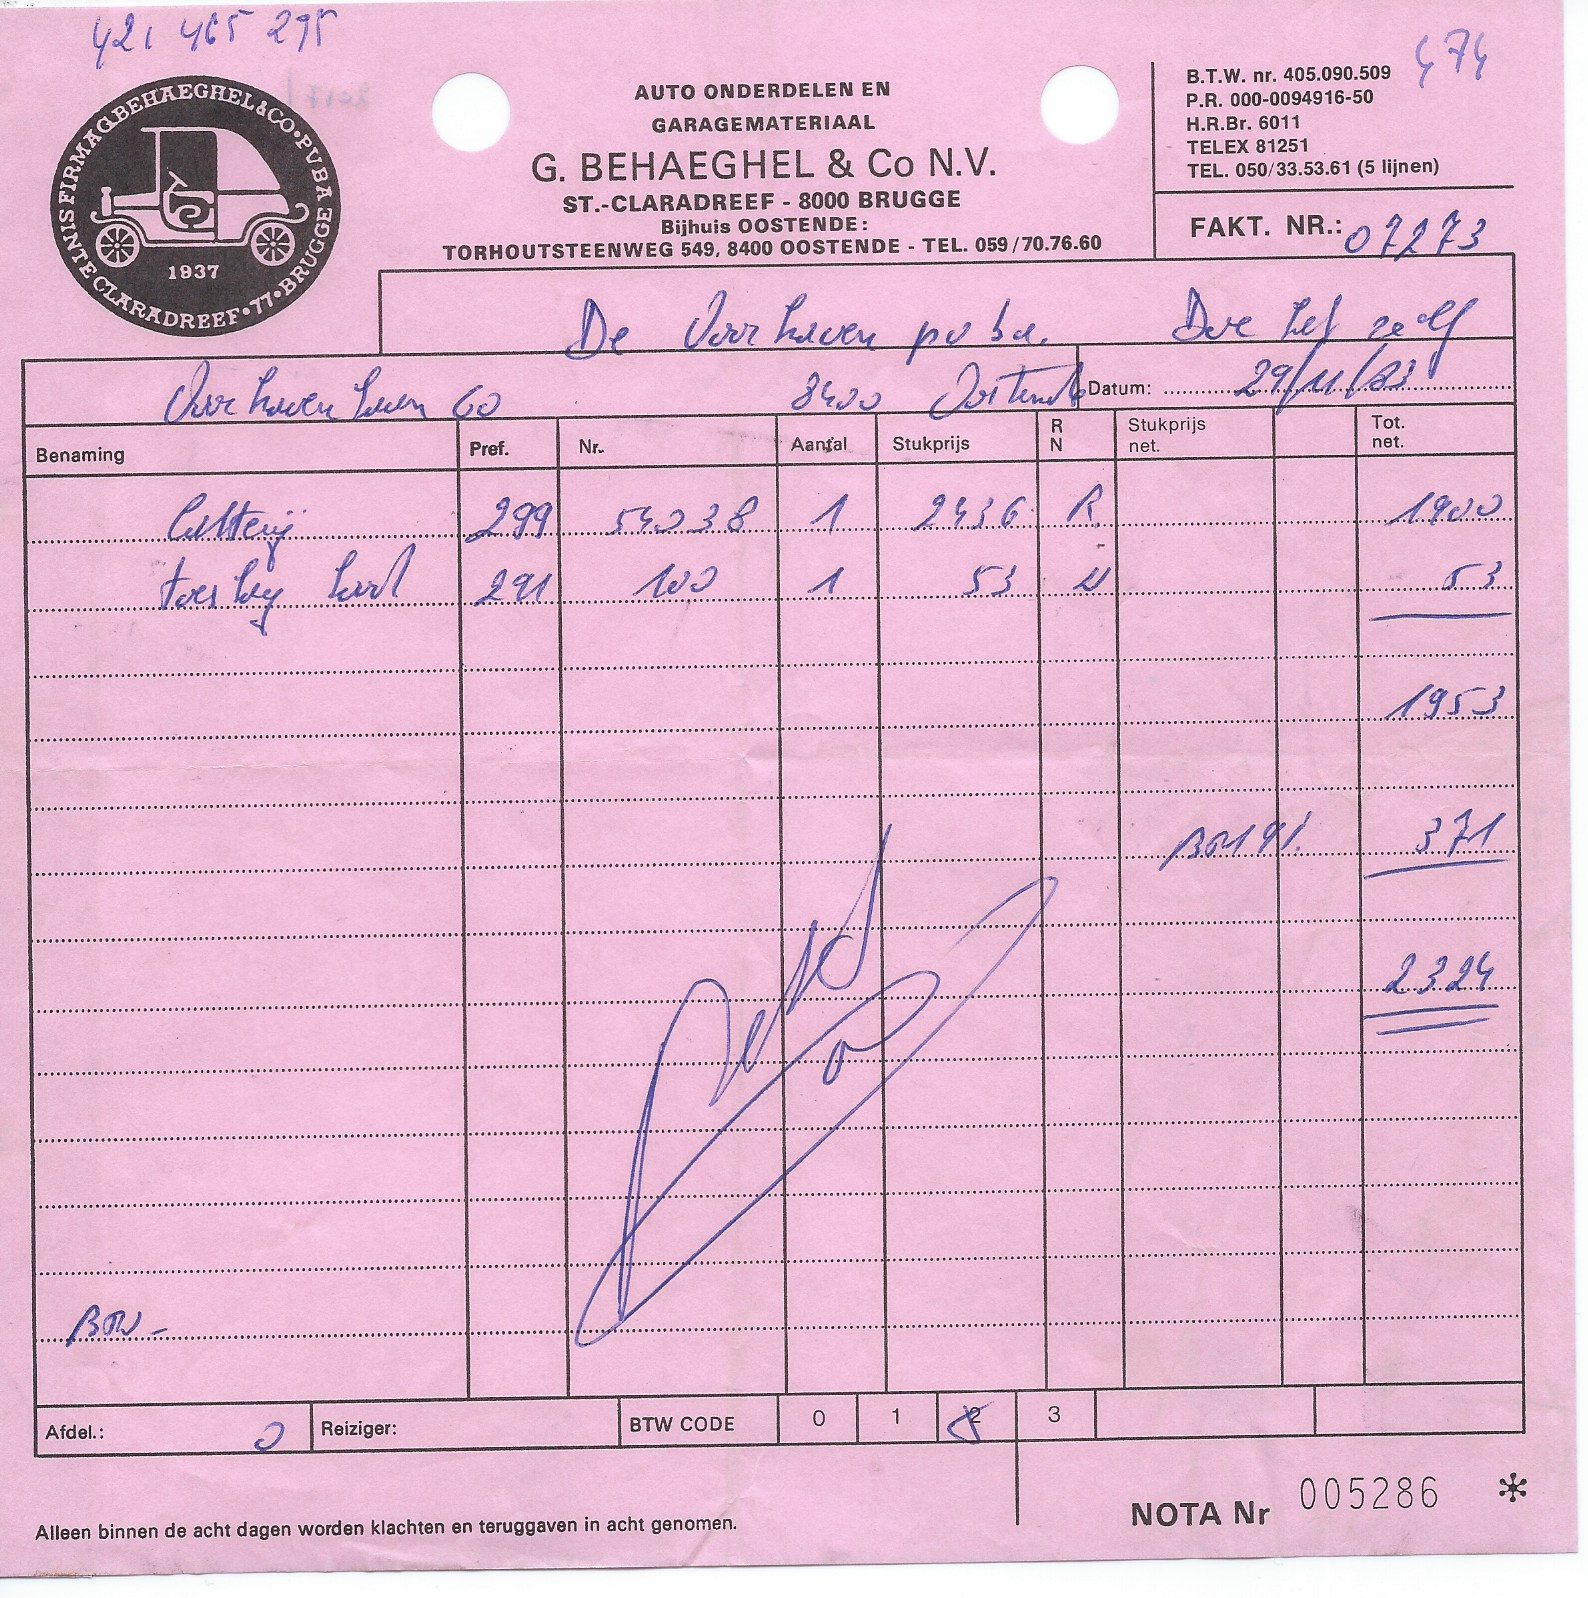 421 465 295
474
FIRMA G. BEHAEGHEL & CO • PVBA BRUGGE • 77 • SINTE CLARADREEF
1937
AUTO ONDERDELEN EN
GARAGEMATERIAAL
G. BEHAEGHEL & Co N.V.
ST.-CLARADREEF - 8000 BRUGGE
Bijhuis OOSTENDE:
TORHOUTSTEENWEG 549, 8400 OOSTENDE - TEL. 059/70.76.60
B.T.W. nr. 405.090.509
P.R. 000-0094916-50
H.R.Br. 6011
TELEX 81251
TEL. 050/33.53.61 (5 lijnen)
FAKT. NR.: 07273
De Voorhaven pvba. Doe het zelf
Voorhavenlaan 60 8400 Oostende Datum: 29/11/83
Benaming Pref. Nr. Aantal Stukprijs R N Stukprijs net. Tot. net.
batterij 299 54038 1 2436 R 1900
toeslag 291 100 1 53 N 53
1953
BTW 19% 371
2324
BTW -
Afdel.: Reiziger: BTW CODE 0 1 2 3
NOTA Nr 005286 *
Alleen binnen de acht dagen worden klachten en teruggaven in acht genomen.